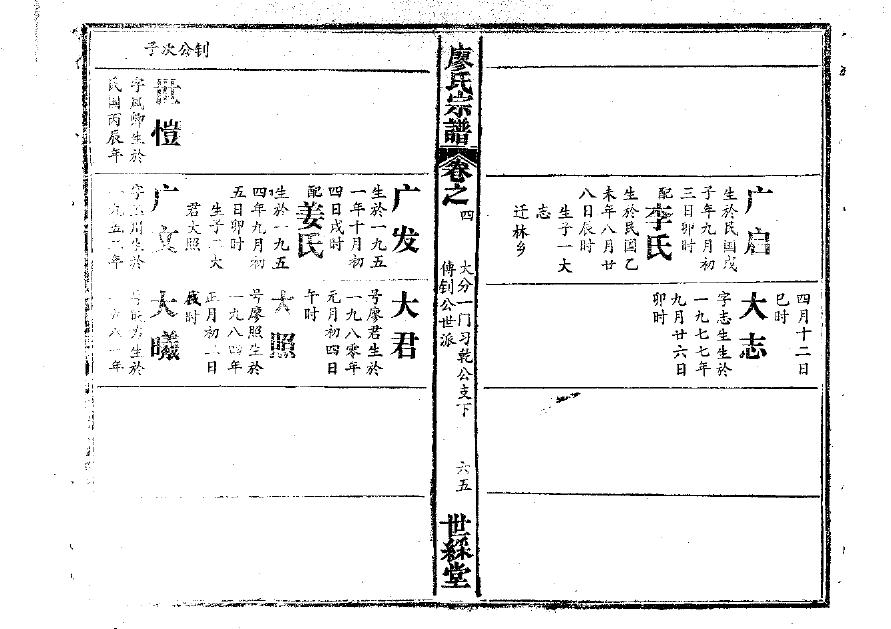 广启
生於民国戊
子年九月初
三日卯时
配李氏
生於民国乙
未年八月廿
八日辰时
生子一大
志
迁林乡
四月十二日
巳时
大志
字志生生於
一九七七年
九月廿六日
卯时
廖氏宗譜
卷之四
大分一门习乾公支下
傅钊公世派
六五
世綵堂
钊公次子
世愷
字凤卿生於
民国丙辰年
广发
生於一九五
一年十月初
四日戌时
配姜氏
生於一九五
四年九月初
五日卯时
生子二大
君大照
广文
生於
一九五二年
大君
号廖君生於
一九八零年
元月初四日
午时
大照
号廖照生於
一九八四年
正月初二日
时
大曦
生於
年